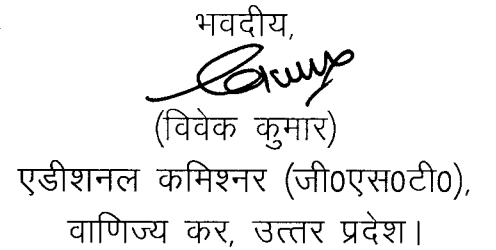 भवदीय,
(विवेक कुमार)
एडीशनल कमिश्नर (जी0एस0टी0),
वाणिज्य कर, उत्तर प्रदेश।